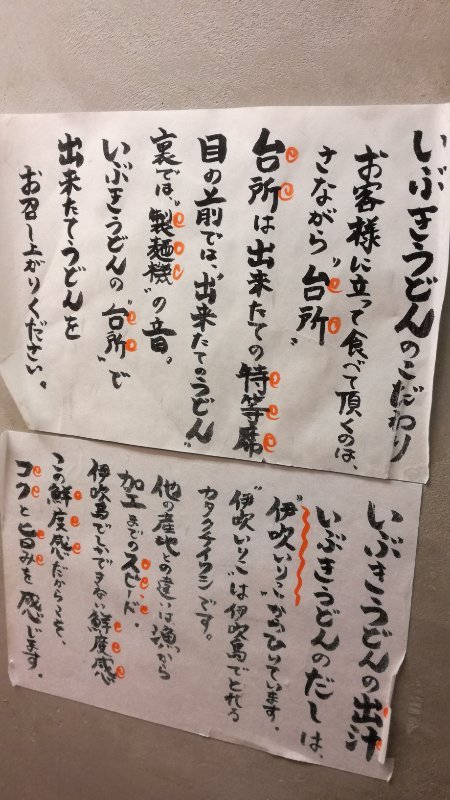 いぶきうどんのこだわり
お客様に立って食べて頂くのは、
さながら〝台所〟
台所は出来たての特等席
目の前では、出来たてのうどん
裏では〝製麺機〟の音。
いぶきうどんの〝台所〟で
出来たてうどんを
お召し上がりください。
いぶきうどんの出汁
いぶきうどんのだしは、
〝伊吹いりこ〟からひいています。
〝伊吹いりこ〟は伊吹島でとれる
カタクチイワシです。
他の産地との違いは漁から
加工までのスピード。
伊吹島でしかできない鮮度感
この鮮度感だからこそ、
コクと旨みを感じます。